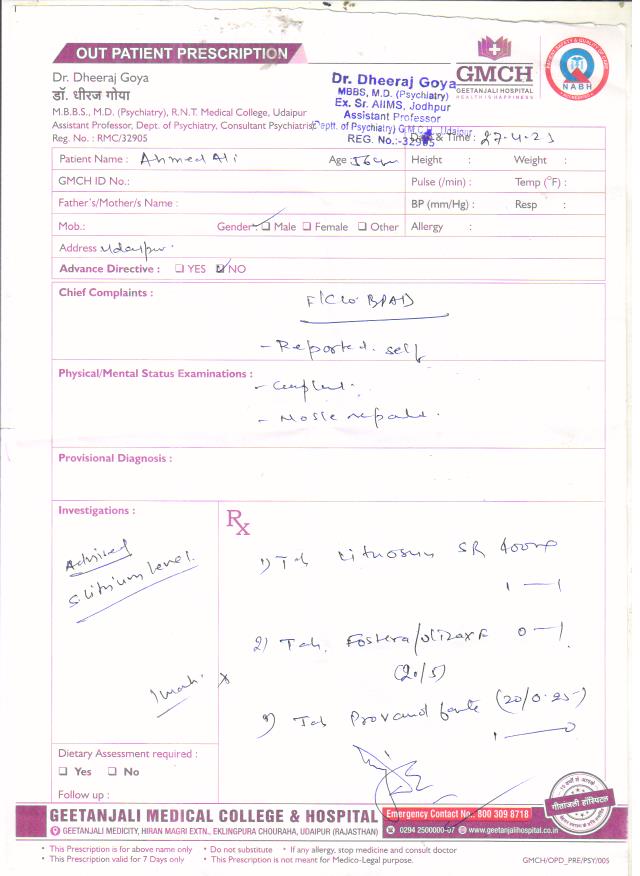 OUT PATIENT PRESCRIPTION
GMCH
GEETANJALI HOSPITAL
HEALTH IS HAPPINESS
NABH
Dr. Dheeraj Goya
डॉ. धीरज गोया
M.B.B.S., M.D. (Psychiatry), R.N.T. Medical College, Udaipur
Assistant Professor, Dept. of Psychiatry, Consultant Psychiatrist
Reg. No. : RMC/32905
Dr. Dheeraj Goya
MBBS, M.D. (Psychiatry)
Ex. Sr. AIIMS, Jodhpur
Assistant Professor
Deptt. of Psychiatry) G.M.C.H., Udaipur
REG. No.:-32905
Date & Time : 27-4-23
Patient Name : Ahmed Ali Age : 56 yr Height : Weight :
GMCH ID No.: Pulse (/min) : Temp (°F) :
Father's/Mother's Name : BP (mm/Hg) : Resp :
Mob.: Gender ☐ Male ☐ Female ☐ Other Allergy :
Address Udaipur.
Advance Directive : ☐ YES ☑ NO
Chief Complaints :
F/C/o BPAD
- Reported self
Physical/Mental Status Examinations :
- Complent.
Provisional Diagnosis :
Investigations :
Advised
S. Lithium level.
Rx
1) Tab Lithosun SR 400mg
1 — 1
2) Tab. Fostera/Olizax F 0 — 1
(20/5)
3) Tab Provanol forte (20/0.25)
1 — 0
Dietary Assessment required :
☐ Yes ☐ No
Follow up :
गीतांजली हॉस्पिटल
GEETANJALI MEDICAL COLLEGE & HOSPITAL
Emergency Contact No.: 800 309 8718
GEETANJALI MEDICITY, HIRAN MAGRI EXTN., EKLINGPURA CHOURAHA, UDAIPUR (RAJASTHAN)
0294 2500000-07 www.geetanjalihospital.co.in
• This Prescription is for above name only • Do not substitute • If any allergy, stop medicine and consult doctor
• This Prescription valid for 7 Days only • This Prescription is not meant for Medico-Legal purpose.
GMCH/OPD_PRE/PSY/005